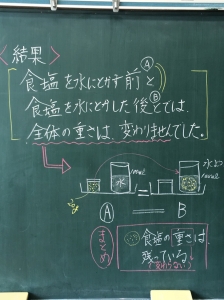 〈結果〉
食塩を水にとかす前Ⓐと
食塩を水にとかした後Ⓑとでは
全体の重さは、変わりませんでした。
水
20g
Ⓐ = B
まとめ
食塩の重さは
残っている。
変わらない